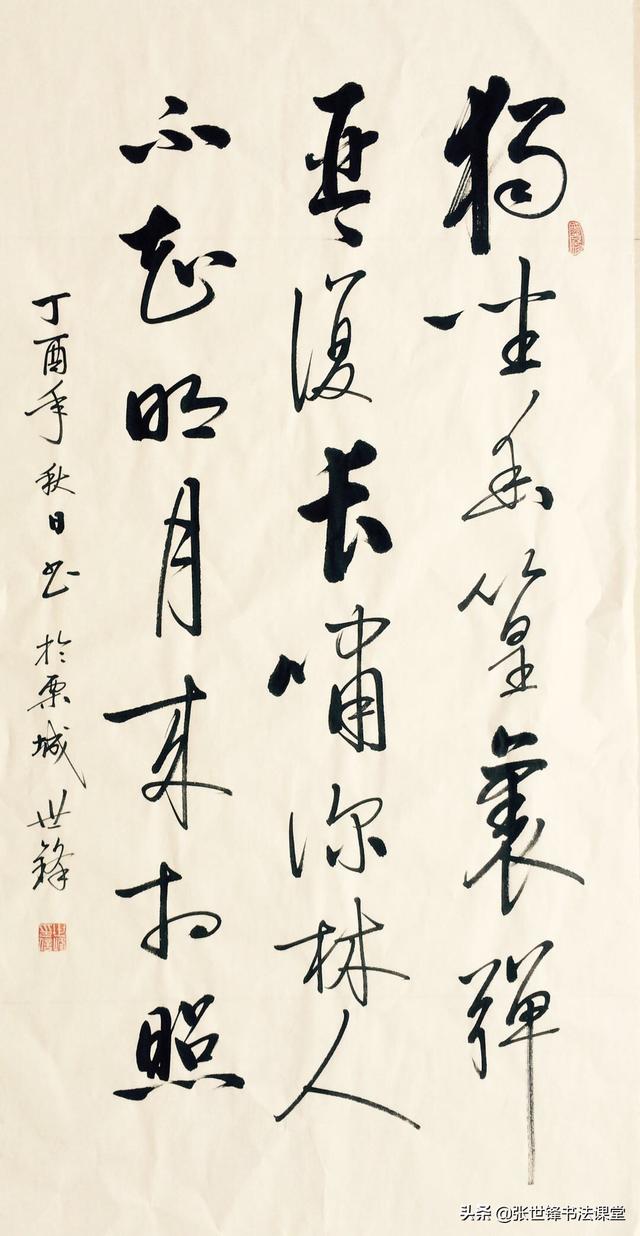 獨坐幽篁裏彈
琴復长嘯深林人
不知明月来相照
丁酉年秋日书於栗城世锋
头条@张世锋书法课堂